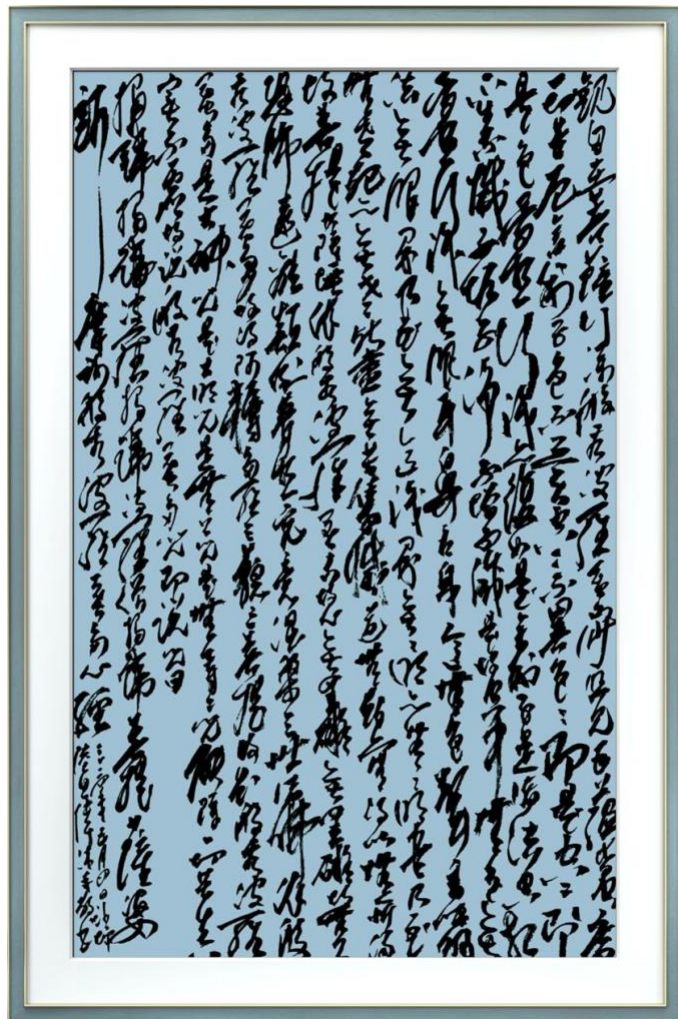 觀自在菩薩行深般若波羅蜜多時照見五蘊皆空度
一切苦厄舍利子色不異空空不異色色即是空空即
是色受想行識亦復如是舍利子是諸法空相
不生不滅不垢不淨不增不減是故空中無色無
受想行識無眼耳鼻舌身意無色聲香味觸
法無眼界乃至無意識界無無明亦無無明盡乃至
無老死亦無老死盡無苦集滅道無智亦無得以無所得
故菩提薩埵依般若波羅蜜多故心無罣礙無罣礙故無有
恐怖遠離顛倒夢想究竟涅槃三世諸佛依般
若波羅蜜多故得阿耨多羅三藐三菩提故知般若波羅
蜜多是大神咒是大明咒是無上咒是無等等咒能除一切苦真
實不虛故說般若波羅蜜多咒即說咒曰
揭諦揭諦波羅揭諦波羅僧揭諦菩提薩婆
訶 摩訶般若波羅蜜多心經